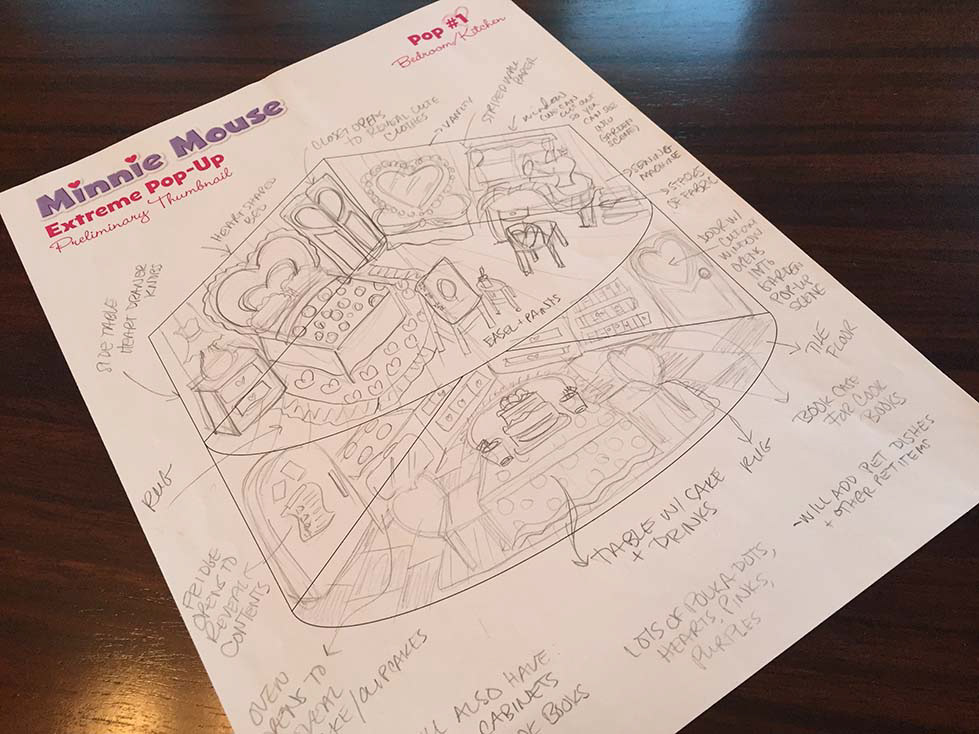 Pop #1
Bedroom/Kitchen
Minnie Mouse
Extreme Pop-Up
Preliminary Thumbnail
CLOSET OPENS
TO REVEAL CUTE
CLOTHES
VANITY
STRIPED WALL
PAPER
WINDOW
SO YOU
CAN SEE
INTO
GARDEN
SCENE)
SEWING
MACHINE
OF FABRIC
HEART SHAPED
BED
SIDE TABLE
HEART DRAWER
KNOBS
EASEL + PAINTS
DOOR W/
CUTOUT
WINDOW
OPENS
INTO
GARDEN
POP-UP
SCENE
TILE
FLOOR
BOOK CASE
FOR COOK
BOOKS
RUG
-WILL ADD PET DISHES
+ OTHER PET ITEMS
RUG
TABLE W/ CAKE
+ DRINKS
FRIDGE
OPENS TO
REVEAL
CONTENTS
LOTS OF POLKA-DOTS,
HEARTS, PINKS,
PURPLES
OVEN
OPENS TO
REVEAL
CAKE/CUPCAKES
ALSO HAVE
CABINETS
BOOKS